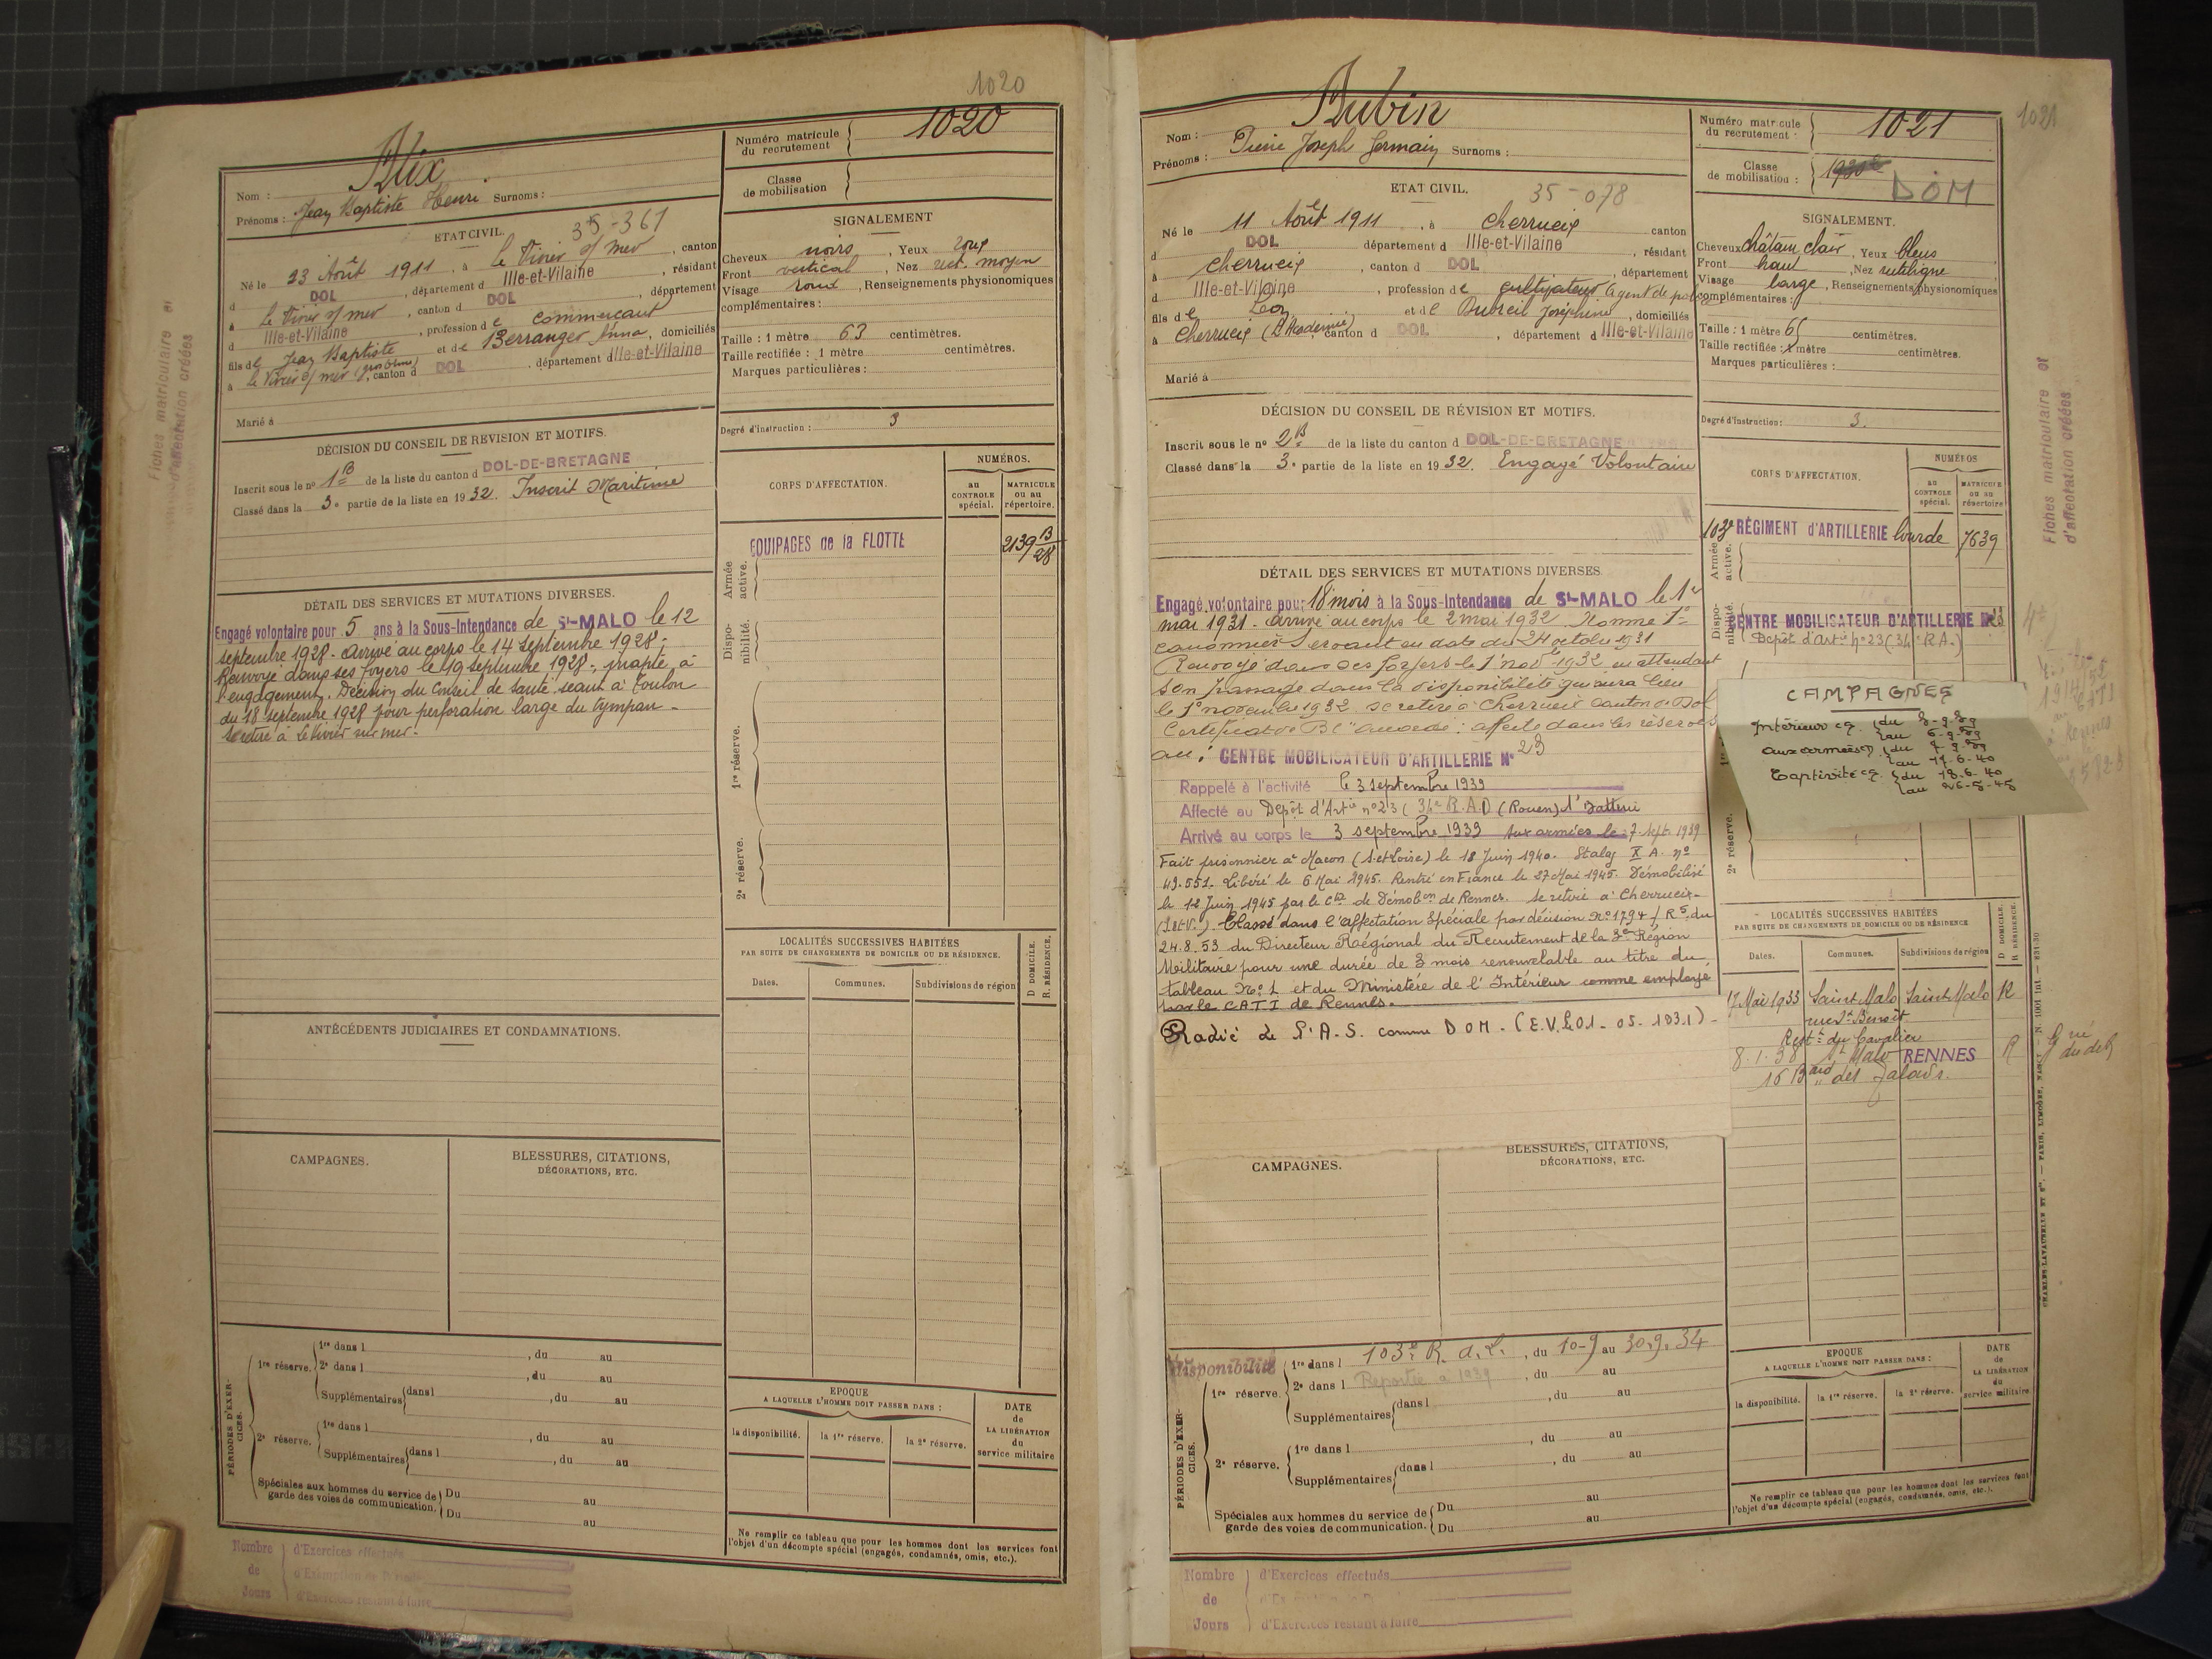 1020
Nom : Alix
Prénoms : Jean Baptiste Henri Surnoms :
Numéro matricule du recrutement 1020
Classe de mobilisation
ETAT CIVIL. 35-361
Né le 23 Août 1911, à le Vivier s/ mer, canton
d DOL, département d Ille-et-Vilaine, résidant
à le Vivier s/ mer, canton d DOL, département
d Ille-et-Vilaine, profession de commerçant
fils de Jean Baptiste et de Berranger Anna, domiciliés
à le Vivier s/ mer, canton d DOL, département d Ille-et-Vilaine
Marié à
SIGNALEMENT
Cheveux noirs, Yeux roux
Front vertical, Nez rect. moyen
Visage rond, Renseignements physionomiques
complémentaires :
Taille : 1 mètre 63 centimètres.
Taille rectifiée : 1 mètre centimètres.
Marques particulières :
Degré d'instruction : 3
DÉCISION DU CONSEIL DE REVISION ET MOTIFS.
Inscrit sous le nº 1 B de la liste du canton d DOL-DE-BRETAGNE
Classé dans la 3e partie de la liste en 1932. Inscrit Maritime
CORPS D'AFFECTATION.
NUMÉROS.
au CONTROLE spécial.
MATRICULE ou au répertoire.
Armée active.
EQUIPAGES de la FLOTTE 2139 B/28
Disponibilité.
1re réserve.
2e réserve.
DÉTAIL DES SERVICES ET MUTATIONS DIVERSES.
Engagé volontaire pour 5 ans à la Sous-Intendance de St-MALO le 12
septembre 1928. Arrivé au corps le 14 Septembre 1928;
Renvoyé dans ses foyers le 19 septembre 1928; inapte à
l'engagement. Décision du Conseil de Santé séant à Toulon
du 18 septembre 1928 pour perforation large du tympan.
Se retire à Le Vivier sur mer.
LOCALITÉS SUCCESSIVES HABITÉES
PAR SUITE DE CHANGEMENTS DE DOMICILE OU DE RÉSIDENCE.
Dates. Communes. Subdivisions de région
D. DOMICILE. R. RÉSIDENCE.
ANTÉCÉDENTS JUDICIAIRES ET CONDAMNATIONS.
CAMPAGNES.
BLESSURES, CITATIONS, DÉCORATIONS, ETC.
PÉRIODES D'EXERCICES.
1re réserve. 1re dans l , du au
2e dans l , du au
Supplémentaires dans l , du au
2e réserve. 1re dans l , du au
Supplémentaires dans l , du au
Spéciales aux hommes du service de garde des voies de communication. Du au
Du au
EPOQUE
A LAQUELLE L'HOMME DOIT PASSER DANS :
la disponibilité. la 1re réserve. la 2e réserve.
DATE de LA LIBÉRATION du service militaire
Ne remplir ce tableau que pour les hommes dont les services font
l'objet d'un décompte spécial (engagés, condamnés, omis, etc.).
Nombre de Jours
d'Exercices effectués
d'Exercices restant à faire
Fiches matriculaire et
d'affectation créées
1021
Nom : Aubin
Prénoms : Pierre Joseph Germain Surnoms :
Numéro matricule du recrutement : 1021
Classe de mobilisation : DOM
ETAT CIVIL. 35-078
Né le 11 Août 1911, à Cherrueix canton
d DOL département d Ille-et-Vilaine, résidant
à Cherrueix, canton d DOL, département
d Ille-et-Vilaine, profession de cultivateur agent de pol
fils de Léon et de Dubreil Joséphine, domiciliés
à Cherrueix, canton d DOL, département d Ille-et-Vilaine
Marié à
SIGNALEMENT.
Cheveux châtain clair, Yeux bleus
Front haut, Nez rectiligne
Visage large, Renseignements physionomiques
complémentaires :
Taille : 1 mètre 65 centimètres.
Taille rectifiée : 1 mètre centimètres.
Marques particulières :
Degré d'instruction : 3.
DÉCISION DU CONSEIL DE RÉVISION ET MOTIFS.
Inscrit sous le nº 2 B de la liste du canton d DOL-DE-BRETAGNE
Classé dans la 3e partie de la liste en 1932. Engagé Volontaire
CORPS D'AFFECTATION.
NUMÉROS
au CONTROLE spécial.
MATRICULE ou au répertoire
Armée active.
103e RÉGIMENT d'ARTILLERIE lourde 7639
Disponibilité.
CENTRE MOBILISATEUR D'ARTILLERIE Nº 23
(Dépôt d'Artie nº 23 (34e R.A.)
DÉTAIL DES SERVICES ET MUTATIONS DIVERSES
Engagé volontaire pour 18 mois à la Sous-Intendance de St-MALO le 1er
mai 1931. Arrivé au corps le 2 mai 1932. Nommé 1er
canonnier servant en date du 24 octobre 1931
Renvoyé dans ses foyers le 1er nov 1932 en attendant
son passage dans la disponibilité qui aura lieu
le 1er novembre 1932 se retire à Cherrueix canton de Dol
Certificat de B.C. accordé : affecté dans les réserves
au : CENTRE MOBILISATEUR D'ARTILLERIE Nº 23
Rappelé à l'activité le 3 septembre 1939
Affecté au Dépôt d'Artie nº 23 (34e R.A.D) (Rouen) 1e Batterie
Arrivé au corps le 3 septembre 1939 Aux armées le 7 sept. 1939
Fait prisonnier à Macon (S.et Loire) le 18 Juin 1940. Stalag X A. nº
49.551. Libéré le 6 Mai 1945. Rentré en France le 27 Mai 1945. Démobilisé
le 12 Juin 1945 par le Ctre de Démobon de Rennes. se retire à Cherrueix
(I.et.V.) Classé dans l'affectation Spéciale par décision Nº 1794 / R5. du
24.8.53 du Directeur Régional du Recrutement de la 3e Région
Militaire pour une durée de 3 mois renouvelable au titre du
tableau Nº 1 et du Ministère de l'Intérieur comme employé
par le CATI de Rennes.
Radié de l'A.S. comme DOM - (E.V. 01-05-1931) -
CAMPAGNES
Intérieur cg du 3-9-39
au 6-9-39
aux armées du 7-9-39
au 17-6-40
Captivité cg. du 18-6-40
au 26-5-45
2e réserve.
LOCALITÉS SUCCESSIVES HABITÉES
PAR SUITE DE CHANGEMENTS DE DOMICILE OU DE RÉSIDENCE
Dates. Communes. Subdivisions de région
D DOMICILE. R RÉSIDENCE.
17 Mai 1933 Saint Malo Saint Malo R
rue St Benoît
Restt du Cavalier
8.1.38 St Malo RENNES R
16 Bard des Talards.
CAMPAGNES.
BLESSURES, CITATIONS,
DÉCORATIONS, ETC.
Disponibilité
PÉRIODES D'EXERCICES.
1re réserve. 1re dans l 103e R.A.L., du 10-9 au 30.9.34
2e dans l Reportée à 1939, du au
Supplémentaires dans l , du au
2e réserve. 1re dans l , du au
Supplémentaires dans l , du au
Spéciales aux hommes du service de garde des voies de communication. Du au
Du au
EPOQUE
A LAQUELLE L'HOMME DOIT PASSER DANS :
la disponibilité. la 1re réserve. la 2e réserve.
DATE de LA LIBÉRATION du service militaire
Ne remplir ce tableau que pour les hommes dont les services font
l'objet d'un décompte spécial (engagés, condamnés, omis, etc.).
Nombre de Jours
d'Exercices effectués
d'Exercices restant à faire
Fiches matriculaire et
d'affectation créées